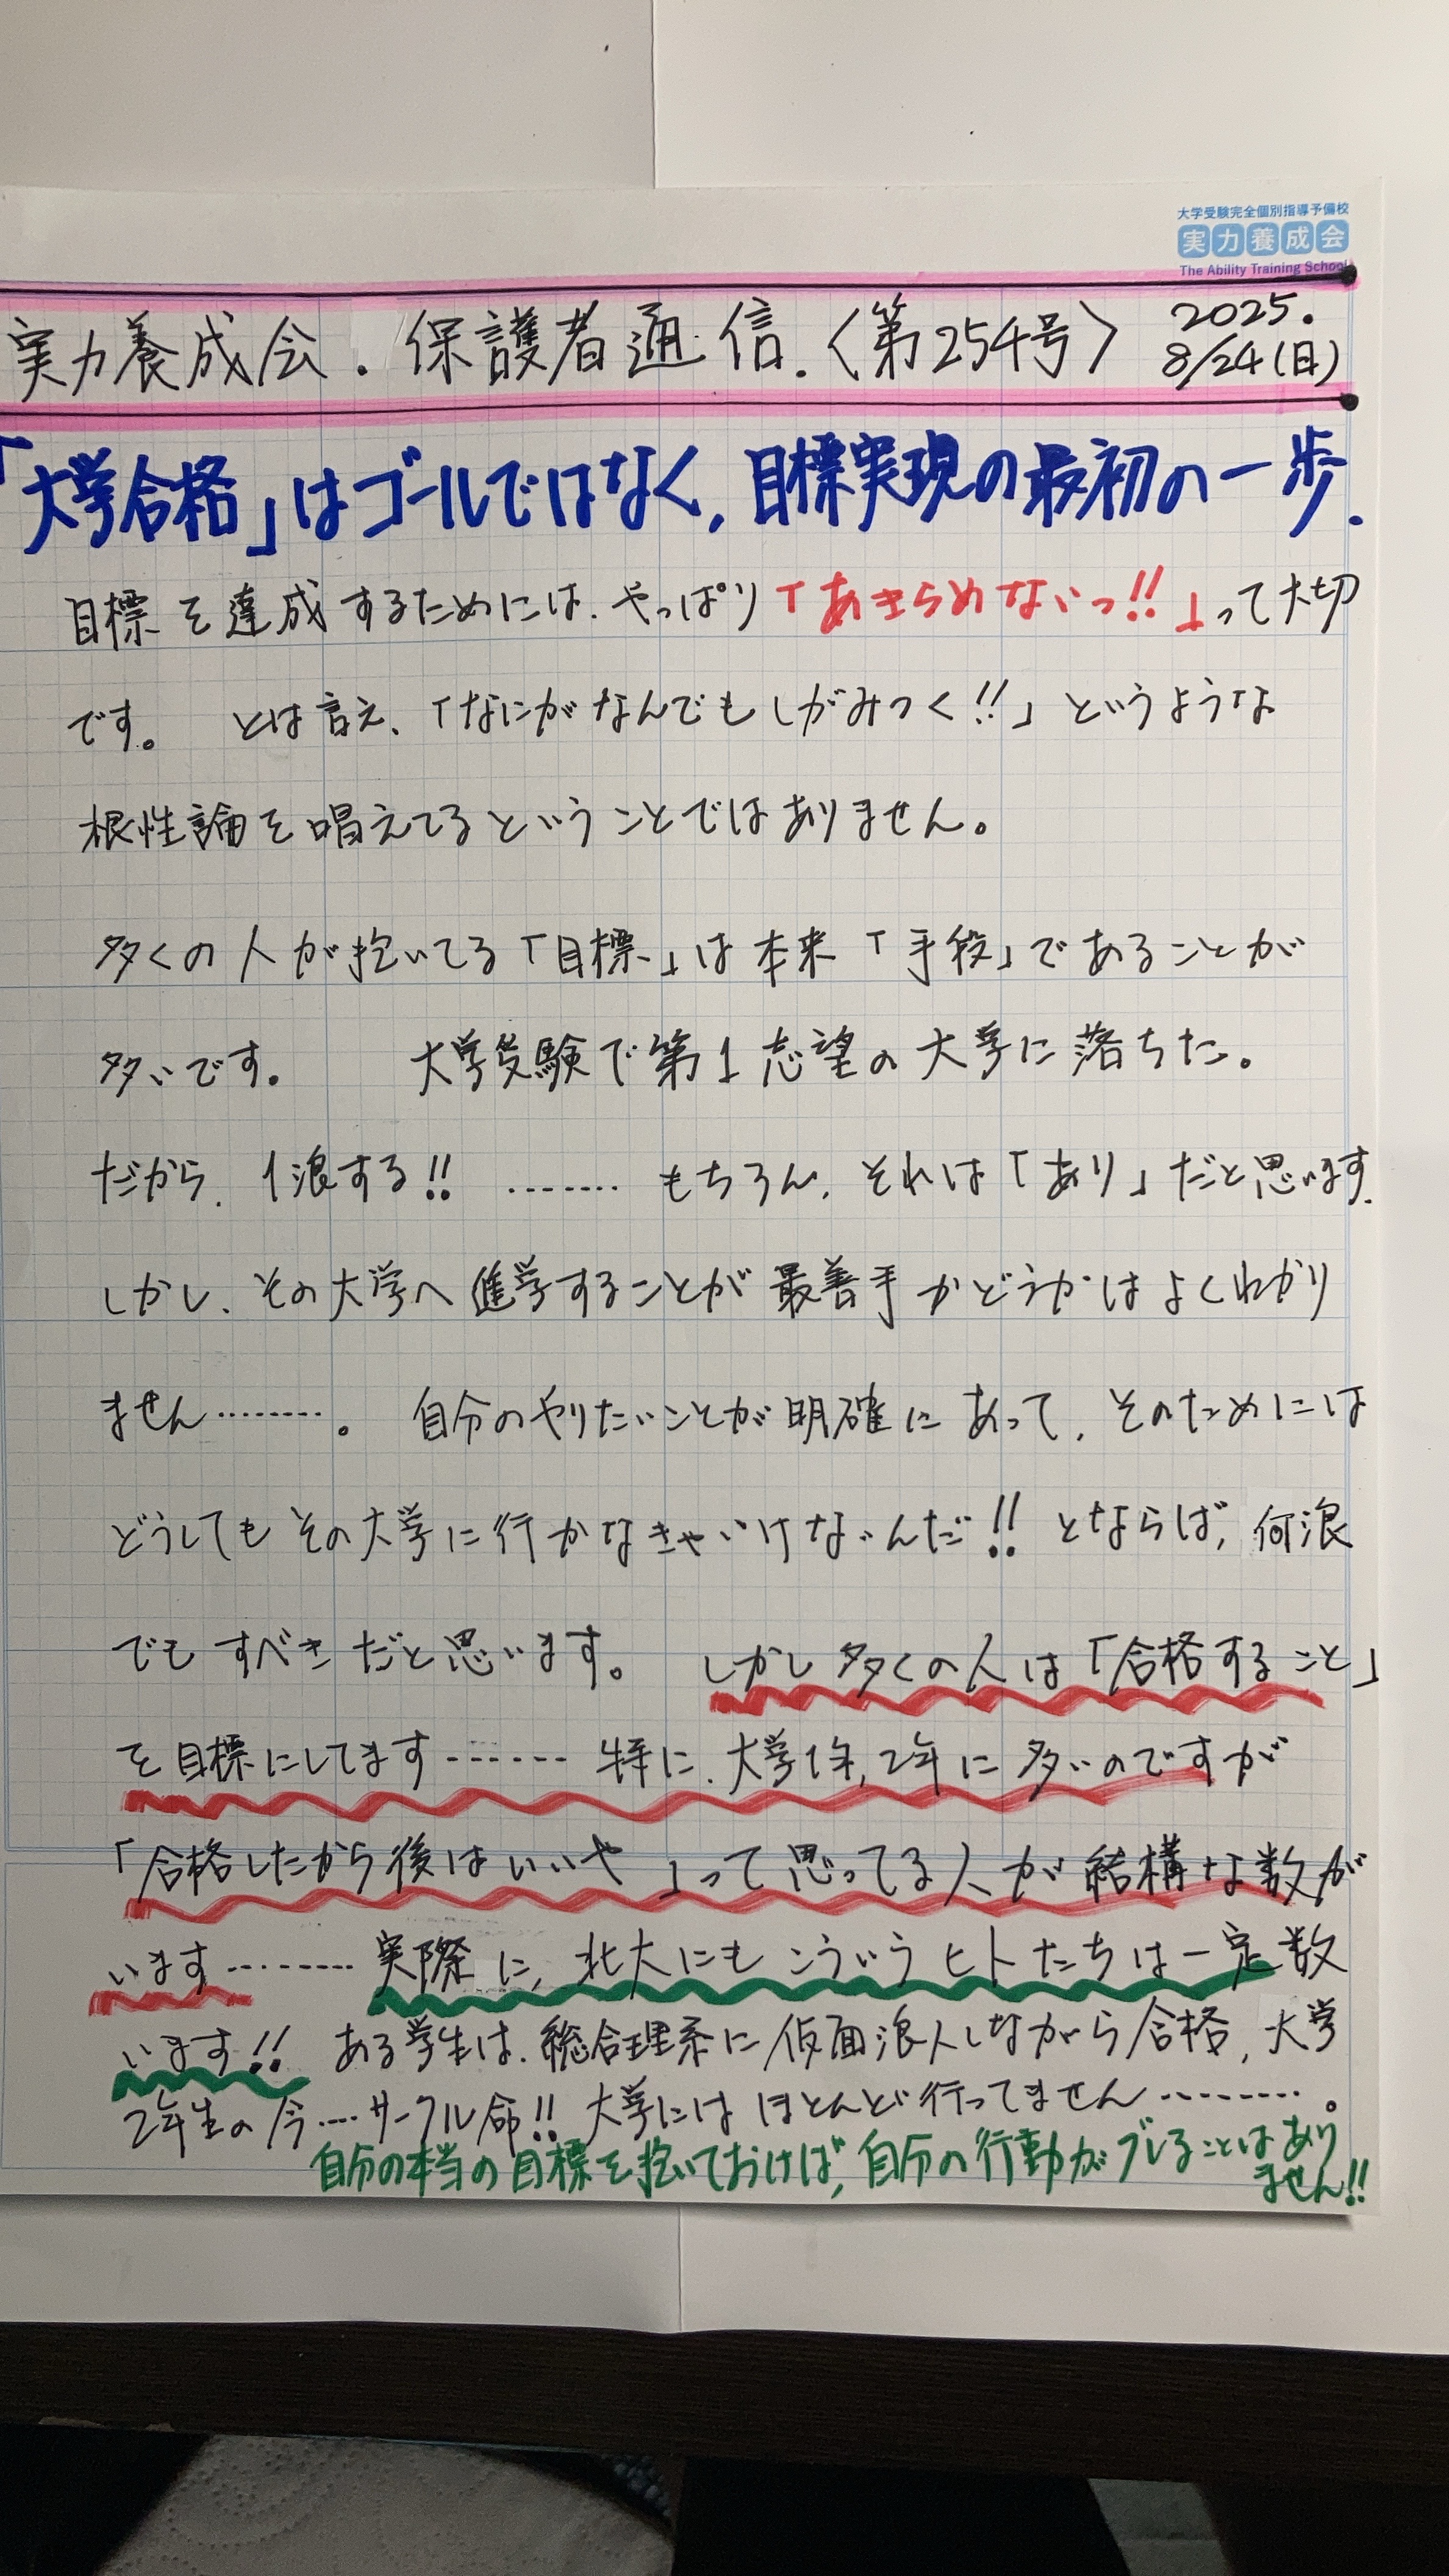 大学受験完全個別指導予備校
実力養成会
The Ability Training School
実力養成会.保護者通信.〈第254号〉 2025.
8/24(日)
「大学合格」はゴールではなく,目標実現の最初の一歩.
目標を達成するためには、やっぱり「あきらめないっ!!」って大切
です。 とは言え、「なにがなんでもしがみつく!!」というような
根性論を唱えてるということではありません。
多くの人が抱いてる「目標」は本来「手段」であることが
多いです。 大学受験で第1志望の大学に落ちた。
だから、1浪する!! ........ もちろん、それは「あり」だと思います.
しかし、その大学へ進学することが最善手かどうかはよくわかり
ません........。 自分のやりたいことが明確にあって、そのためには
どうしてもその大学に行かなきゃいけないんだ!! とならば,何浪
でもすべきだと思います。 しかし多くの人は「合格すること」
を目標にしてます....... 特に、大学1年,2年に多いのですが
「合格したから後はいいや」って思ってる人が結構な数が
います........ 実際に,北大にもこういうヒトたちは一定数
います!! ある学生は、総合理系に仮面浪人しながら合格,大学
2年生の今....サークル命!! 大学にはほとんど行ってません.........。
自分の本当の目標を抱いておけば,自分の行動がブレることはあり
ません!!